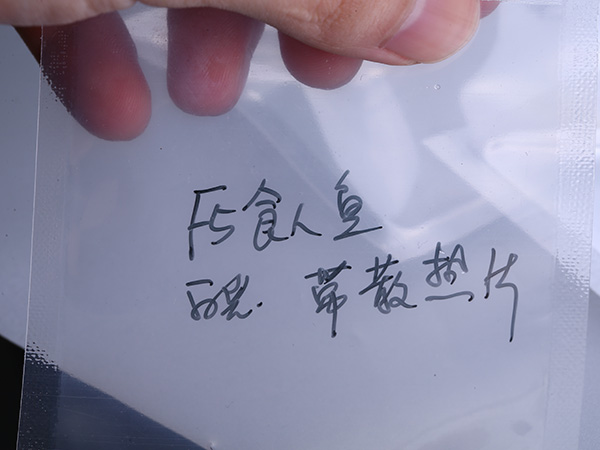 F5食人鱼
后壳. 带散热片